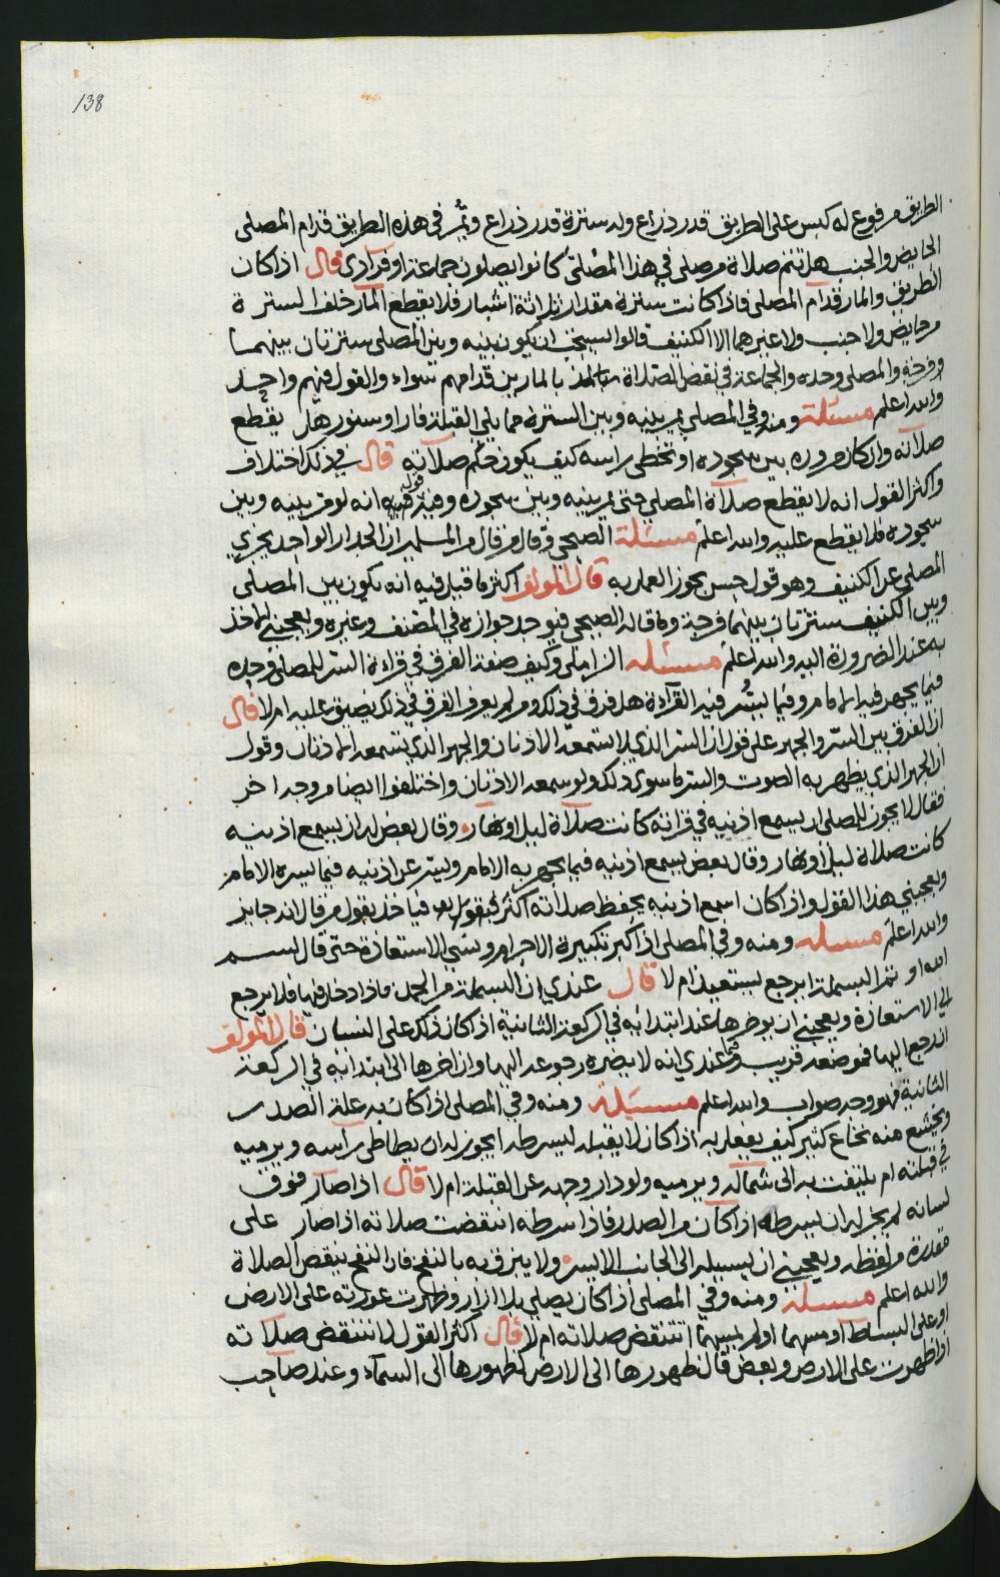 138
الطريق مرفوع له كبس على الطريق قدر ذراع وله سترة قدر ذراع ويمر في هذه الطريق قدام المصلى
الحايض والجنب هل تتم صلاة من صلى في هذا المصلى كانوا يصلون جماعة او فرادى قال اذا كان
الطريق والمار قدام المصلى فاذا كانت سترة مقدار ثلاثة اشبار فلا يقطع المار خلف السترة
من حايض ولا جنب ولا غيرهما الا الكنيف قالوا يستحب ان يكون بينه وبين المصلى سترتان بينهما
فرجة والمصلى وحده والجماعة في نقض الصلاة بالمار بين قدامهم سواء والقول فيهم واحد
والله اعلم مسئلة ومنه وفي المصلي يمر بينه وبين السترة مما يلي القبلة فار او سنور هل يقطع
صلاته وان كان مروره بين سجوده او تخطى براسه كيف يكون حكم صلاته قال في ذلك اختلاف
واكثر القول انه لا يقطع صلاة المصلي حتى يمر بينه وبين سجوده وفيه قول انه لو مر بينه وبين
سجوده فلا يقطع عليه والله اعلم مسئلة الصبحي وقال من قال من المسلمين ان الجدار الواحد يجزي
المصلي عن الكنيف وهو قول حسن يجوز العمل به قال المولف اكثر ما قيل فيه انه يكون بين المصلى
وبين الكنيف سترتان بينهما فرجة وما قاله الصبحي فيوجد جوازه في المصنف وغيره ويعجبني الاخذ
به عند الضرورة اليه والله اعلم مسئله الزاملي وكيف صفة الفرق في قراءة السر للمصلي وحده
فيما يجهر فيه الامام وفيما يسر فيه القراءة هل فرق في ذلك ومن لم يعرف الفرق في ذلك يضيق عليه ام لا قال
ان الفرق بين السر والجهر على قول ان السر الذي لا تسمعه الاذنان والجهر الذي تسمعه الاذنان وقول
ان الجهر الذي يظهر به الصوت والسر ما سوى ذلك ولو سمعه الاذنان واختلفوا ايضا من وجه اخر
فقال لا يجوز للمصلي ان يسمع اذنيه في قراته كانت صلاة ليل او نهار وقال بعض له ان يسمع اذنيه
كانت صلاة ليل او نهار وقال بعض يسمع اذنيه فيما يجهر به الامام وليسر عن اذنيه فيما يسره الامام
ويعجبني هذا القول واذا كان اسمع اذنيه يحفظ صلاته اكثر فياخذ بقول من قال انه جايز
والله اعلم مسئله ومنه وفي المصلى اذا كبر تكبيرة الاحرام ونسي الاستعاذة حتى قال بسم
الله او تم البسملة ايرجع يستعيذ ام لا قال عندي ان البسملة من الحمد فاذا دخل فيها فلا يرجع
الى الاستعاذة ويعجبني ان يوخرها عند ابتدايه في الركعة الثانية اذا كان ذلك على النسيان قال المولف
ان رجع اليها فموضعه قريب فيما عندي انه لا يضره رجوعه اليها وان اخرها الى ابتدائه في الركعة
الثانية فهو وجه صواب والله اعلم مسئلة ومنه وفي المصلى اذا كان به علة الصدر
ويخشع منه نخاع كثير كيف يفعل به اذا كان لا يقبله ليسرطه ايجوز له ان يطاطي براسه ويرميه
في قبلته ام يلتفت به الى شماله ويرميه ولو دار وجهه عن القبلة ام لا قال اذا صار فوق
لسانه لم يجز له ان يسرطه اذا كان من الصدر فاذا سرطه انتقضت صلاته اذا صار على
مقدرة من لفظه ويعجبني ان يسيله الى الجانب الايسر ولا يبزق به بالنفخ فان النفخ ينقض الصلاة
والله اعلم مسئله ومنه وفي المصلى اذا كان يصلي بلا ازار وظهرت عورته على الارض
او على البساط او مسهما او لم يمسهما اتنتقض صلاته ام لا قال اكثر القول لا تنتقض صلاته
اذا ظهرت على الارض وبعض قال ظهورها الى الارض كظهورها الى السماء وعند صاحب